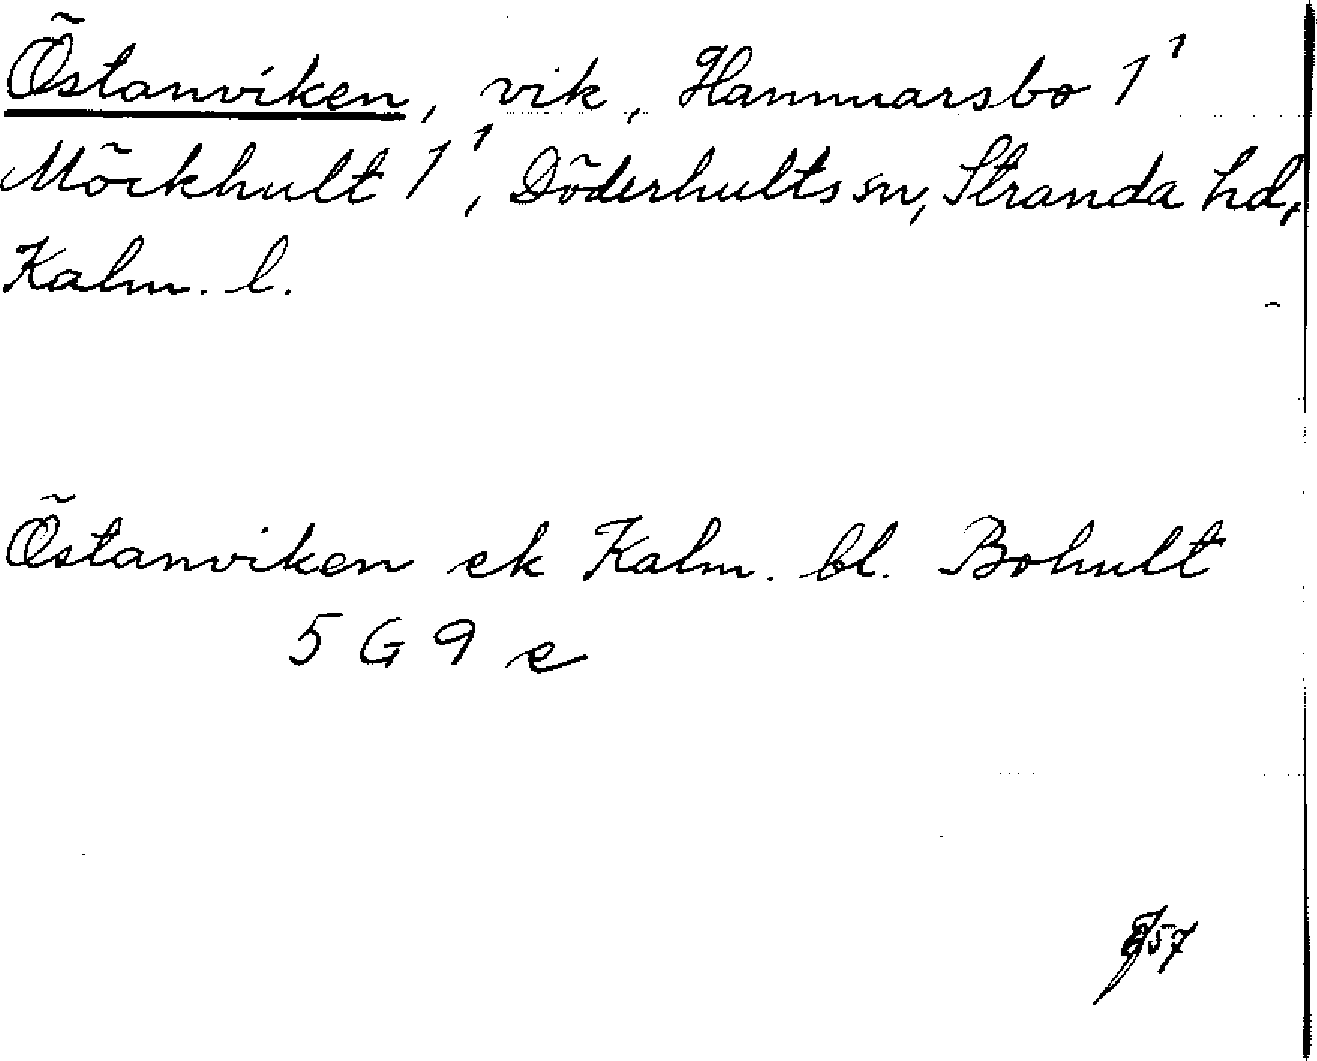 Östanviken, vik, Hammarsbo 1¹
Möckhult 1¹, Döderhults sn, Stranda hd,
Kalm. l.
Östanviken ek Kalm. bl. Bohult
5 G 9 e
57